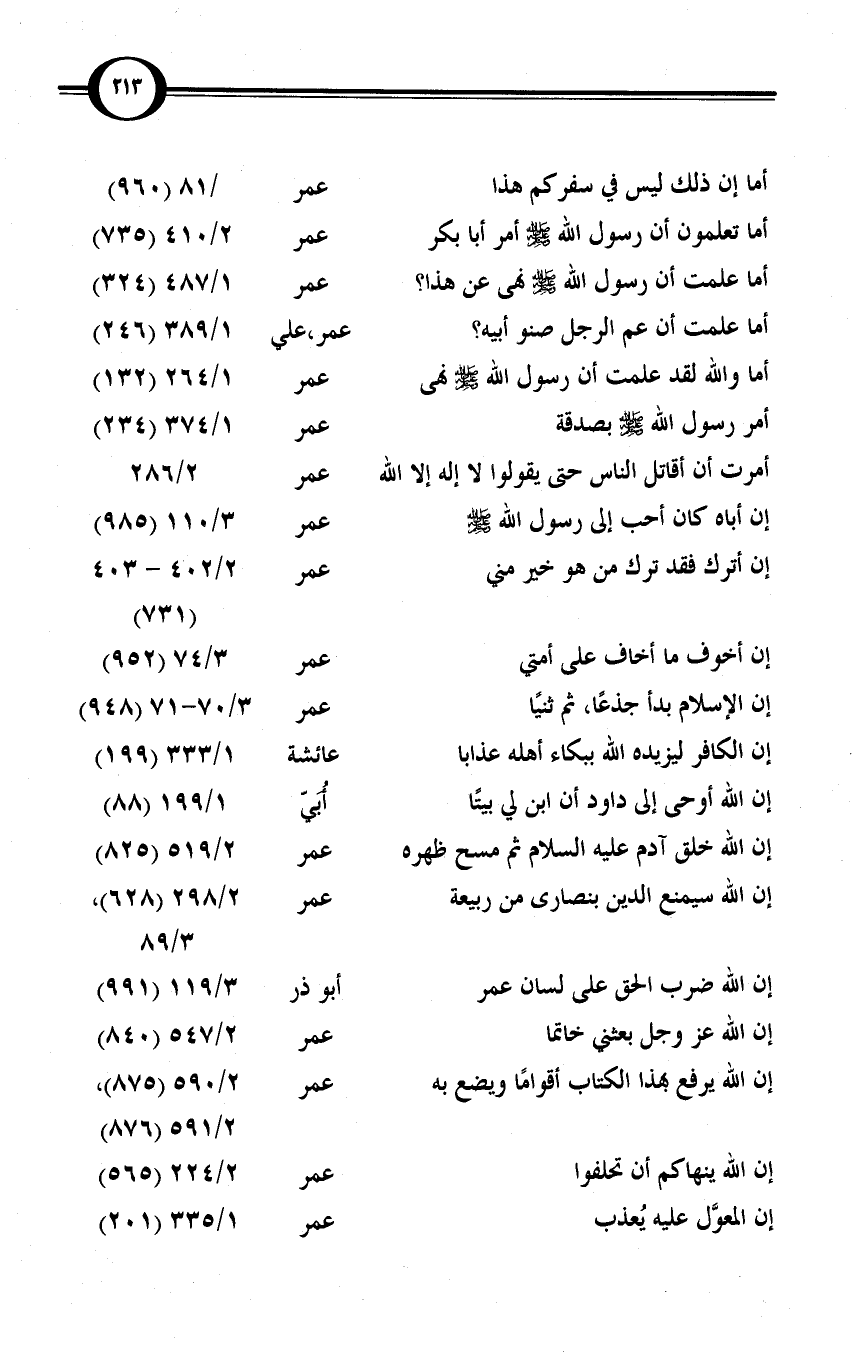 ٢١٣
أما إن ذلك ليس في سفركم هذا عمر /٨١ (٩٦٠)
أما تعلمون أن رسول الله ﷺ أمر أبا بكر عمر ٤١٠/٢ (٧٣٥)
أما علمت أن رسول الله ﷺ نهى عن هذا؟ عمر ٤٨٧/١ (٣٢٤)
أما علمت أن عم الرجل صنو أبيه؟ عمر،علي ٣٨٩/١ (٢٤٦)
أما والله لقد علمت أن رسول الله ﷺ نهى عمر ٢٦٤/١ (١٣٢)
أمر رسول الله ﷺ بصدقة عمر ٣٧٤/١ (٢٣٤)
أمرت أن أقاتل الناس حتى يقولوا لا إله إلا الله عمر ٢٨٦/٢
إن أباه كان أحب إلى رسول الله ﷺ عمر ١١٠/٣ (٩٨٥)
إن أترك فقد ترك من هو خير مني عمر ٤٠٢/٢ – ٤٠٣
(٧٣١)
إن أخوف ما أخاف على أمتي عمر ٧٤/٣ (٩٥٢)
إن الإسلام بدأ جذعًا، ثم ثنيًا عمر ٧٠/٣–٧١ (٩٤٨)
إن الكافر ليزيده الله ببكاء أهله عذابا عائشة ٣٣٣/١ (١٩٩)
إن الله أوحى إلى داود أن ابن لي بيتًا أُبَيّ ١٩٩/١ (٨٨)
إن الله خلق آدم عليه السلام ثم مسح ظهره عمر ٥١٩/٢ (٨٢٥)
إن الله سيمنع الدين بنصارى من ربيعة عمر ٢٩٨/٢ (٦٢٨)،
٨٩/٣
إن الله ضرب الحق على لسان عمر أبو ذر ١١٩/٣ (٩٩١)
إن الله عز وجل بعثني خاتما عمر ٥٤٧/٢ (٨٤٠)
إن الله يرفع بهذا الكتاب أقوامًا ويضع به عمر ٥٩٠/٢ (٨٧٥)،
٥٩١/٢ (٨٧٦)
إن الله ينهاكم أن تحلفوا عمر ٢٢٤/٢ (٥٦٥)
إن المعوَّل عليه يُعذب عمر ٣٣٥/١ (٢٠١)